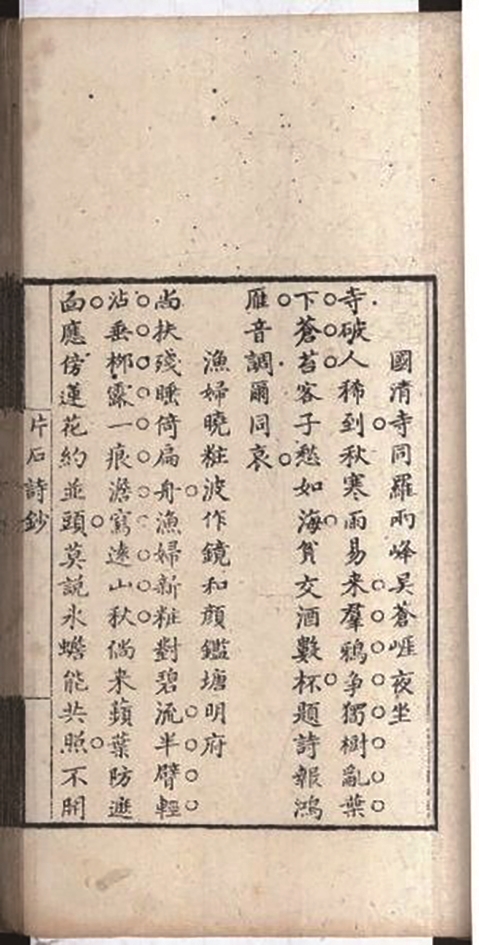 國清寺同羅兩峰吴蒼崕夜坐
寺破人稀到秋寒雨易来羣鴉争獨樹亂葉
下蒼苔客子愁如海貧交酒數杯題詩報鴻
雁音調爾同哀
漁婦曉粧波作鏡和顔鑑塘明府
尚扶殘睡倚扁舟漁婦新粧對碧流半臂輕
沾垂柳露一痕澹寫遠山秋倘来蘋葉防遮
面應傍蓮花約並頭莫説氷蟾能共照不開
片石詩鈔